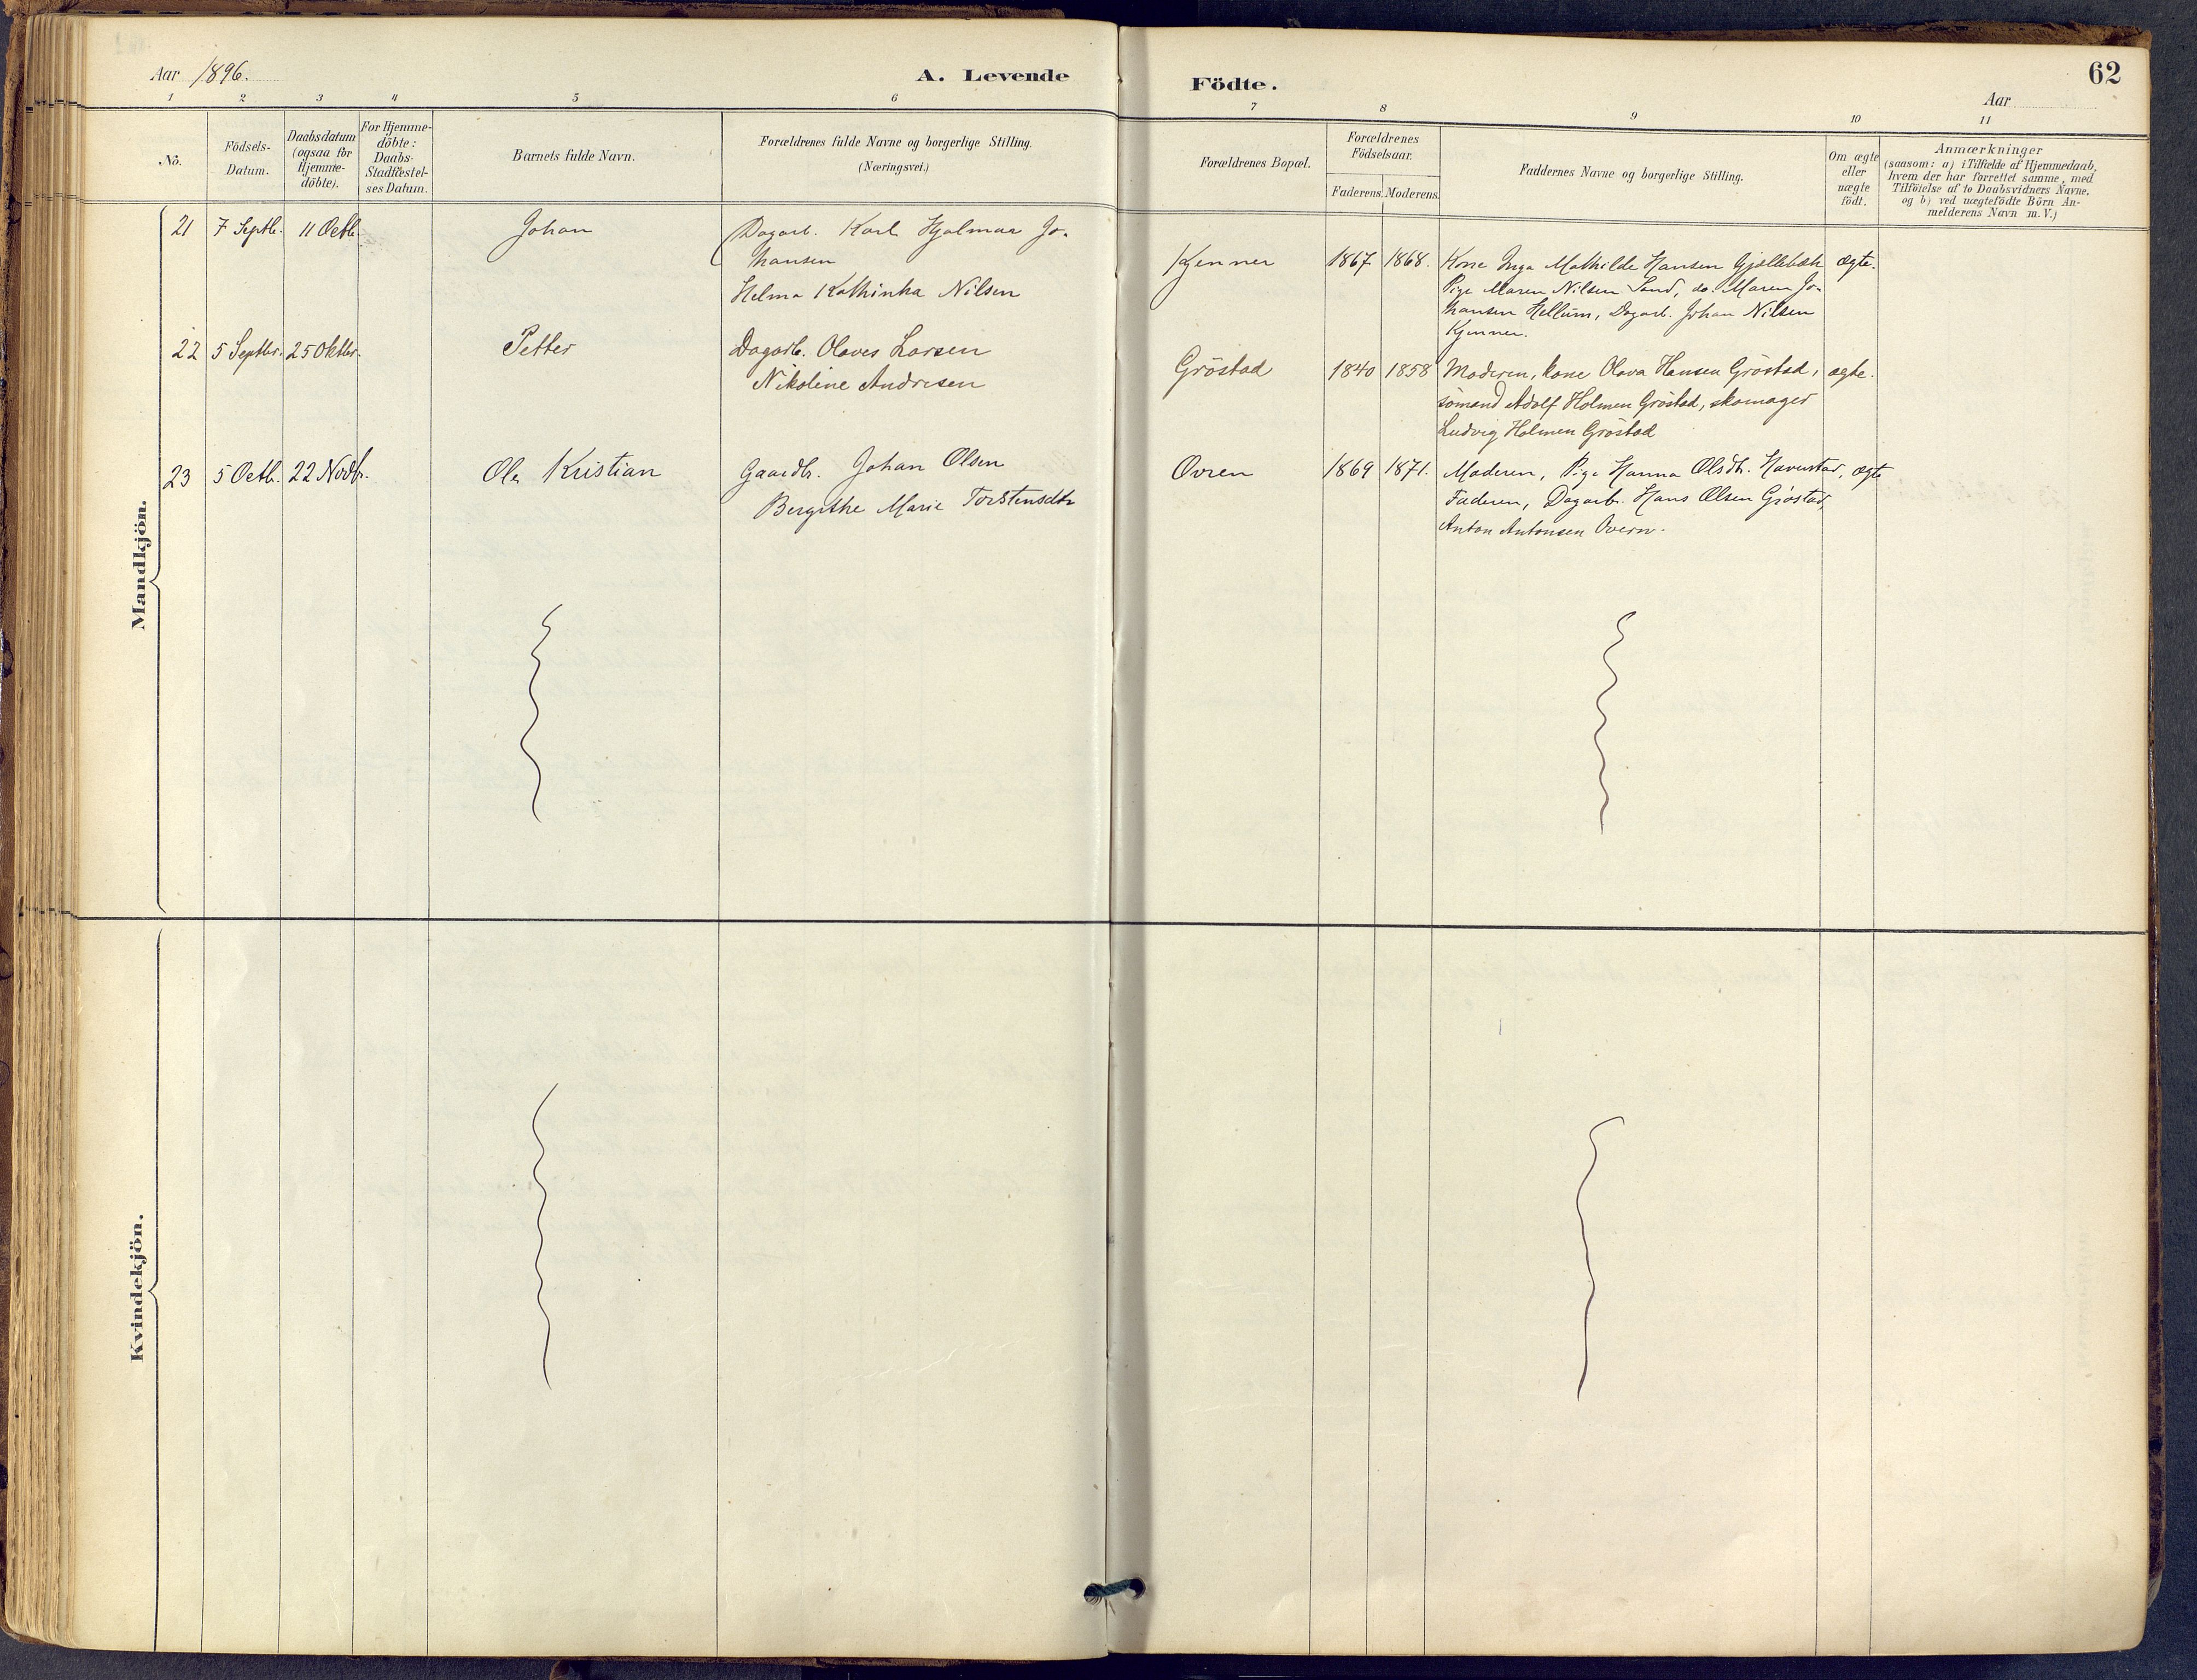 Aar 1896.
A. Levende Födte.
62
Aar
1 2 3 4 5 6 7 8 9 10 11
No.
Födsels-
Datum.
Daabsdatum
(ogsaa for
Hjemme-
döbte).
For Hjemme-
döbte:
Daabs-
Stadfæstel-
ses Datum.
Barnets fulde Navn.
Forældrenes fulde Navne og borgerlige Stilling.
(Næringsvei.)
Forældrenes Bopæl.
Forældrenes
Födselsaar.
Faderens. Moderens.
Faddernes Navne og borgerlige Stilling.
Om ægte
eller
uægte
födt.
Anmærkninger
(saasom: a) i Tilfælde af Hjemmedaab,
hvem der har forrettet samme, med
Tilföielse af to Daabsvidners Navne,
og b) ved uægtefödte Börn An-
melderens Navn m. V.)
Mandkjön.
21 7 Septb. 11 Octb. Johan
Dagarb. Karl Hjalmar Jo-
hansen
Helma Kathinka Nilsen
Kjenner 1867 1868.
Kone Inga Mathilde Hansen Gjellebæk
Pige Maren Nilsen Sand, do. Maren Jo-
hansen Hellum, Dagarb. Johan Nilsen
Kjenner.
ægte.
22 5 Septbr. 25 Oktbr. Petter
Dagarb. Olaves Larsen
Nikoline Andresen
Gröstad 1840 1858
Moderen, kone Olava Hansen Gröstad,
sömand Adolf Holmen Gröstad, skomager
Ludvig Holmen Gröstad
ægte.
23 5 Octb. 22 Novbr. Ole Kristian
Gaardbr. Johan Olsen
Bergithe Marie Torstensdtr
Ovren 1869 1871.
Moderen, Pige Hanna Olsdtr. Haverstad,
Faderen, Dagarb. Hans Olsen Gröstad,
Anton Antonsen Overn.
ægte
Kvindekjön.